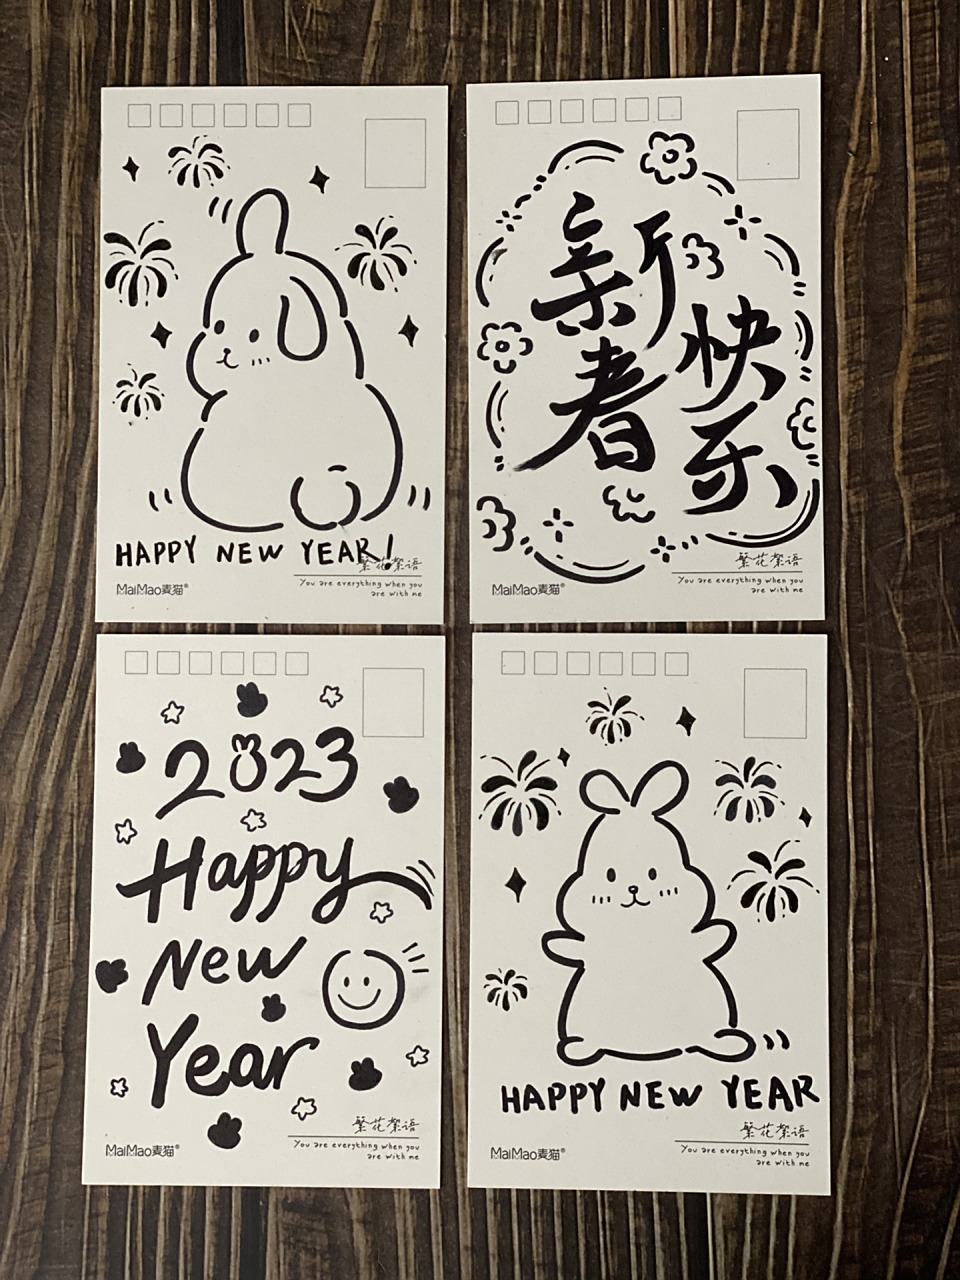 HAPPY NEW YEAR!
繁花絮语
You are everything when you
are with me
MaiMao麦猫®
新春
快乐
繁花絮语
You are everything when you
are with me
MaiMao麦猫®
2023
Happy
New
Year
繁花絮语
You are everything when you
are with me
MaiMao麦猫®
HAPPY NEW YEAR
繁花絮语
You are everything when you
are with me
MaiMao麦猫®